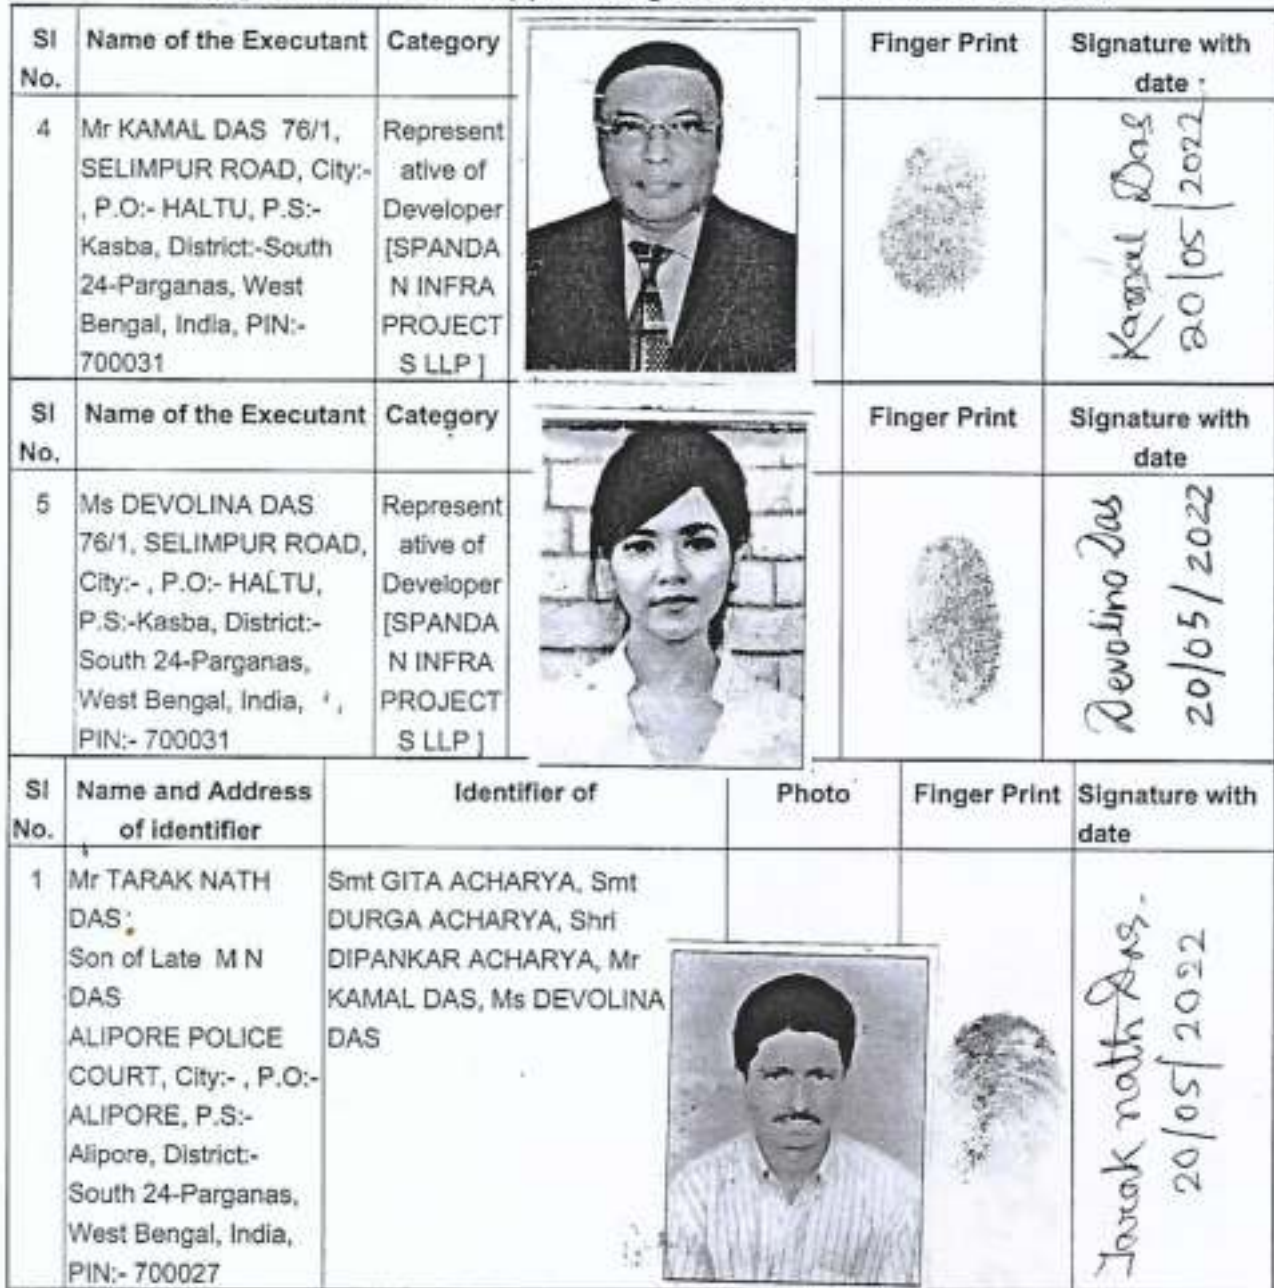 SI No.
Name of the Executant
Category
Finger Print
Signature with date
4
Mr KAMAL DAS 76/1,
SELIMPUR ROAD, City:-
, P.O:- HALTU, P.S:-
Kasba, District:-South
24-Parganas, West
Bengal, India, PIN:-
700031
Represent
ative of
Developer
[SPANDA
N INFRA
PROJECT
S LLP ]
Kamal Das
20/05/2022
SI No.
Name of the Executant
Category
Finger Print
Signature with date
5
Ms DEVOLINA DAS
76/1, SELIMPUR ROAD,
City:- , P.O:- HALTU,
P.S:-Kasba, District:-
South 24-Parganas,
West Bengal, India, ,
PIN:- 700031
Represent
ative of
Developer
[SPANDA
N INFRA
PROJECT
S LLP ]
Devolina Das
20/05/2022
SI No.
Name and Address
of identifier
Identifier of
Photo
Finger Print
Signature with
date
1
Mr TARAK NATH
DAS
Son of Late M N
DAS
ALIPORE POLICE
COURT, City:- , P.O:-
ALIPORE, P.S:-
Alipore, District:-
South 24-Parganas,
West Bengal, India,
PIN:- 700027
Smt GITA ACHARYA, Smt
DURGA ACHARYA, Shri
DIPANKAR ACHARYA, Mr
KAMAL DAS, Ms DEVOLINA
DAS
Tarak nath Das.
20/05/2022